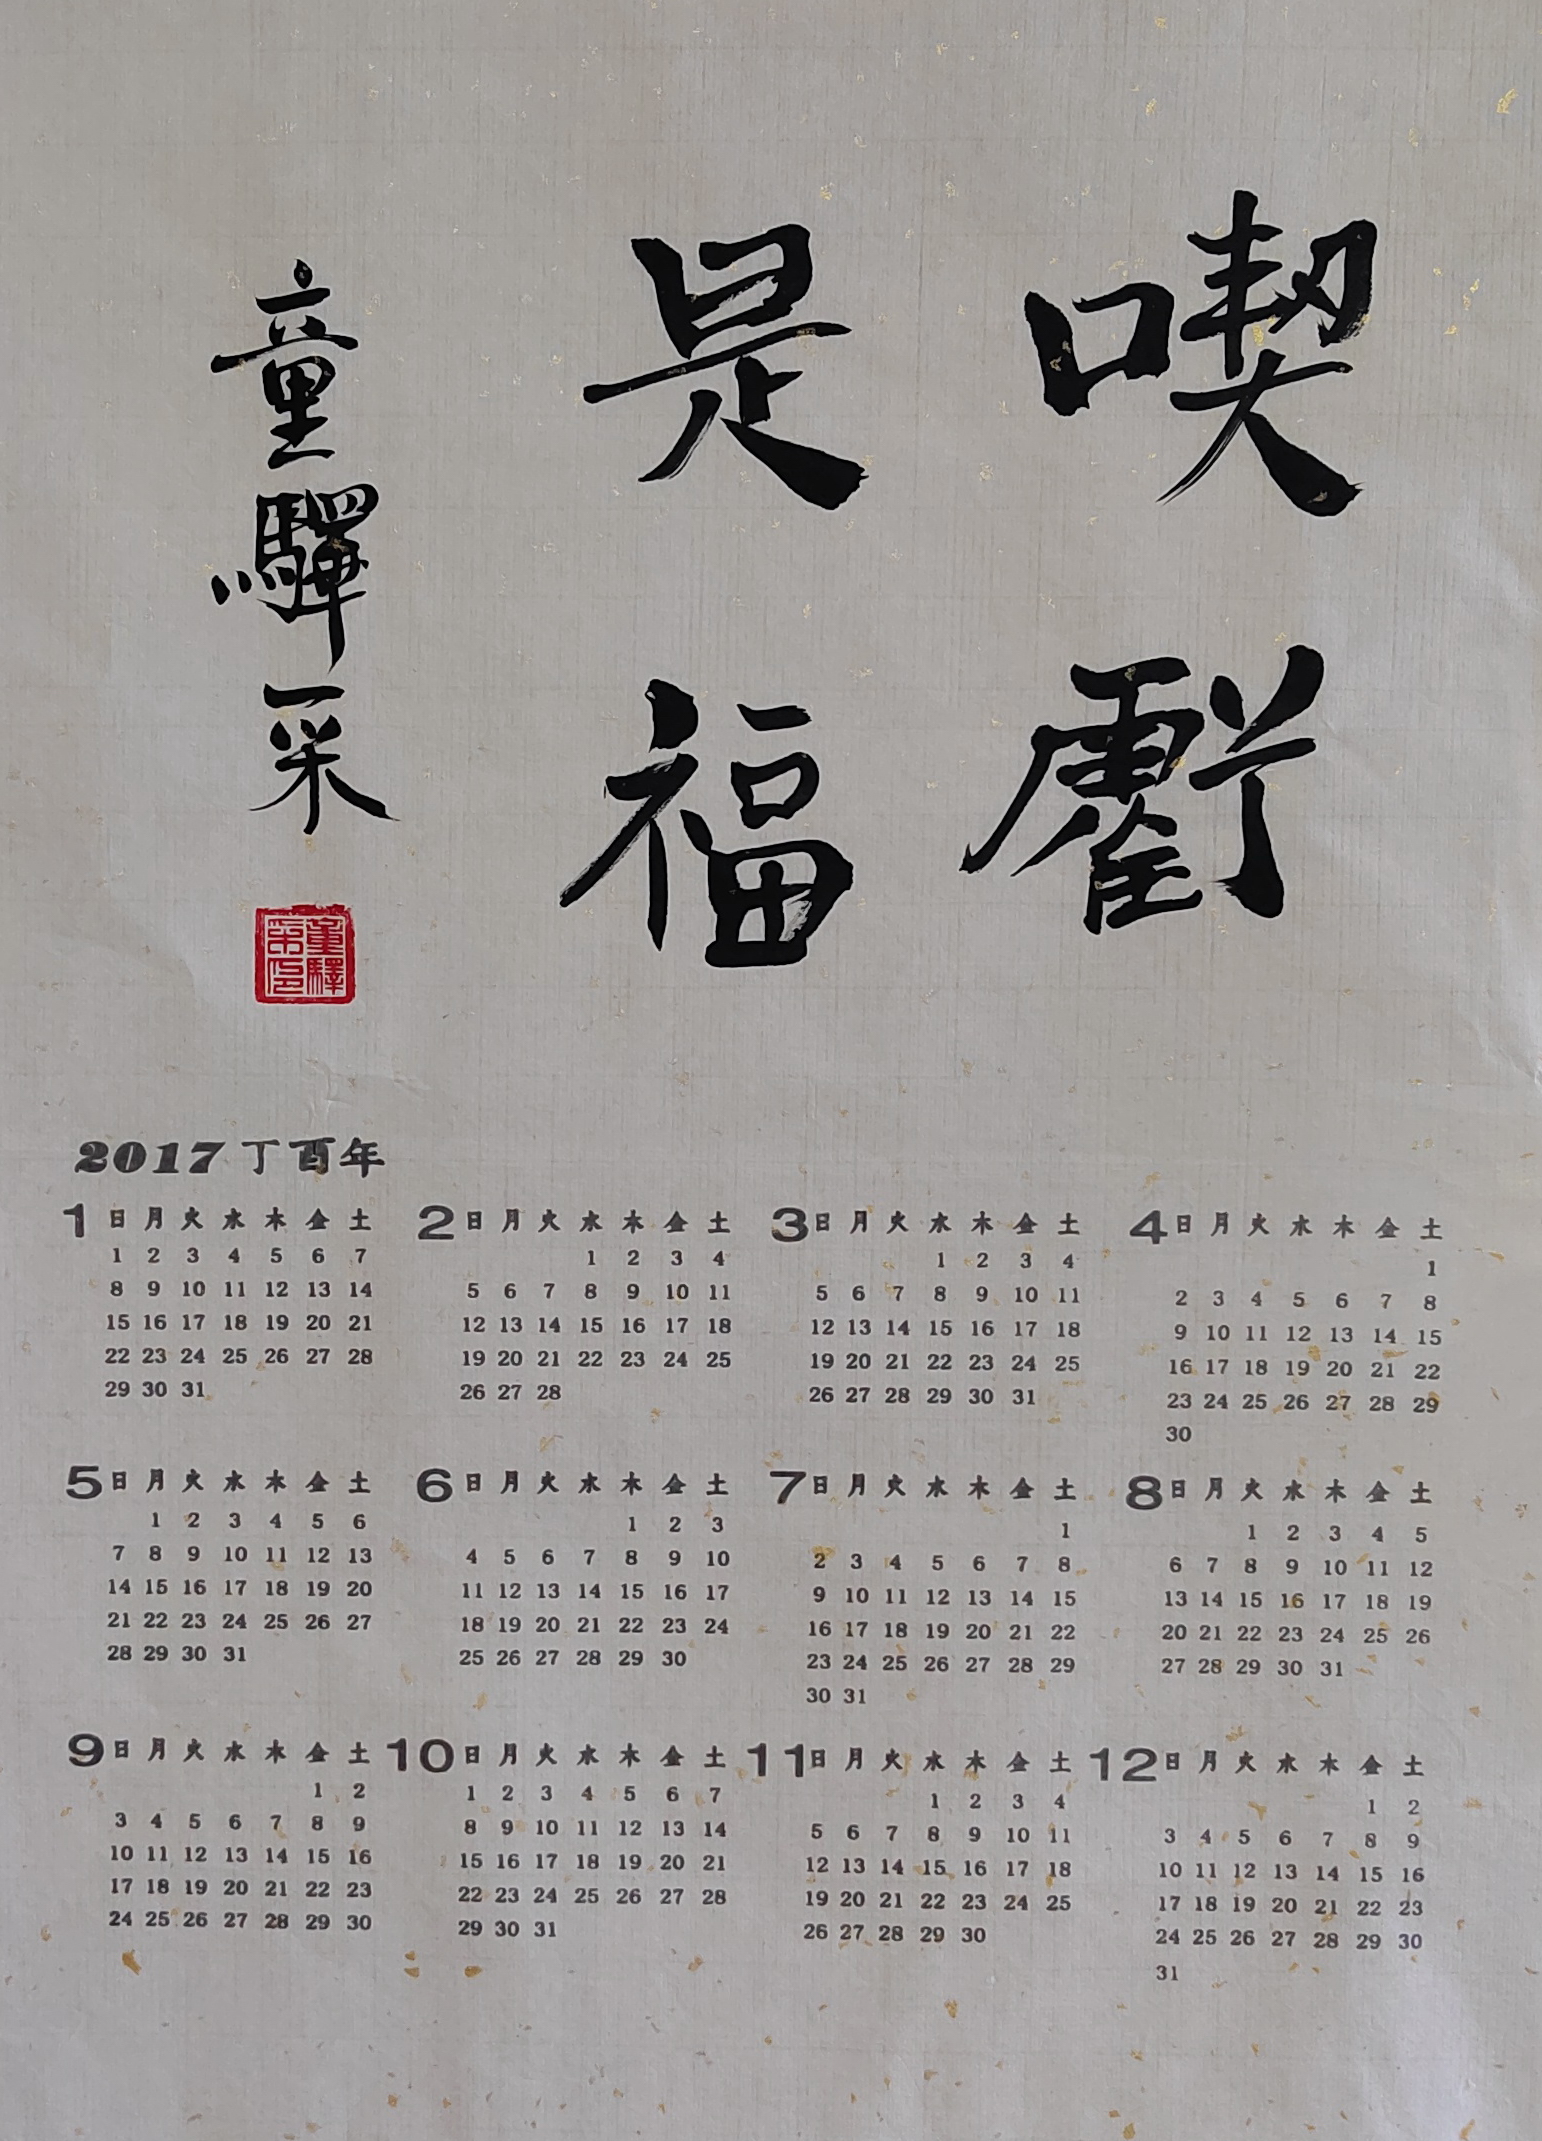 喫虧
是福
童驛采
2017丁酉年
1 日 月 火 水 木 金 土
1 2 3 4 5 6 7
8 9 10 11 12 13 14
15 16 17 18 19 20 21
22 23 24 25 26 27 28
29 30 31
2 日 月 火 水 木 金 土
1 2 3 4
5 6 7 8 9 10 11
12 13 14 15 16 17 18
19 20 21 22 23 24 25
26 27 28
3 日 月 火 水 木 金 土
1 2 3 4
5 6 7 8 9 10 11
12 13 14 15 16 17 18
19 20 21 22 23 24 25
26 27 28 29 30 31
4 日 月 火 水 木 金 土
1
2 3 4 5 6 7 8
9 10 11 12 13 14 15
16 17 18 19 20 21 22
23 24 25 26 27 28 29
30
5 日 月 火 水 木 金 土
1 2 3 4 5 6
7 8 9 10 11 12 13
14 15 16 17 18 19 20
21 22 23 24 25 26 27
28 29 30 31
6 日 月 火 水 木 金 土
1 2 3
4 5 6 7 8 9 10
11 12 13 14 15 16 17
18 19 20 21 22 23 24
25 26 27 28 29 30
7 日 月 火 水 木 金 土
1
2 3 4 5 6 7 8
9 10 11 12 13 14 15
16 17 18 19 20 21 22
23 24 25 26 27 28 29
30 31
8 日 月 火 水 木 金 土
1 2 3 4 5
6 7 8 9 10 11 12
13 14 15 16 17 18 19
20 21 22 23 24 25 26
27 28 29 30 31
9 日 月 火 水 木 金 土
1 2
3 4 5 6 7 8 9
10 11 12 13 14 15 16
17 18 19 20 21 22 23
24 25 26 27 28 29 30
10 日 月 火 水 木 金 土
1 2 3 4 5 6 7
8 9 10 11 12 13 14
15 16 17 18 19 20 21
22 23 24 25 26 27 28
29 30 31
11 日 月 火 水 木 金 土
1 2 3 4
5 6 7 8 9 10 11
12 13 14 15 16 17 18
19 20 21 22 23 24 25
26 27 28 29 30
12 日 月 火 水 木 金 土
1 2
3 4 5 6 7 8 9
10 11 12 13 14 15 16
17 18 19 20 21 22 23
24 25 26 27 28 29 30
31